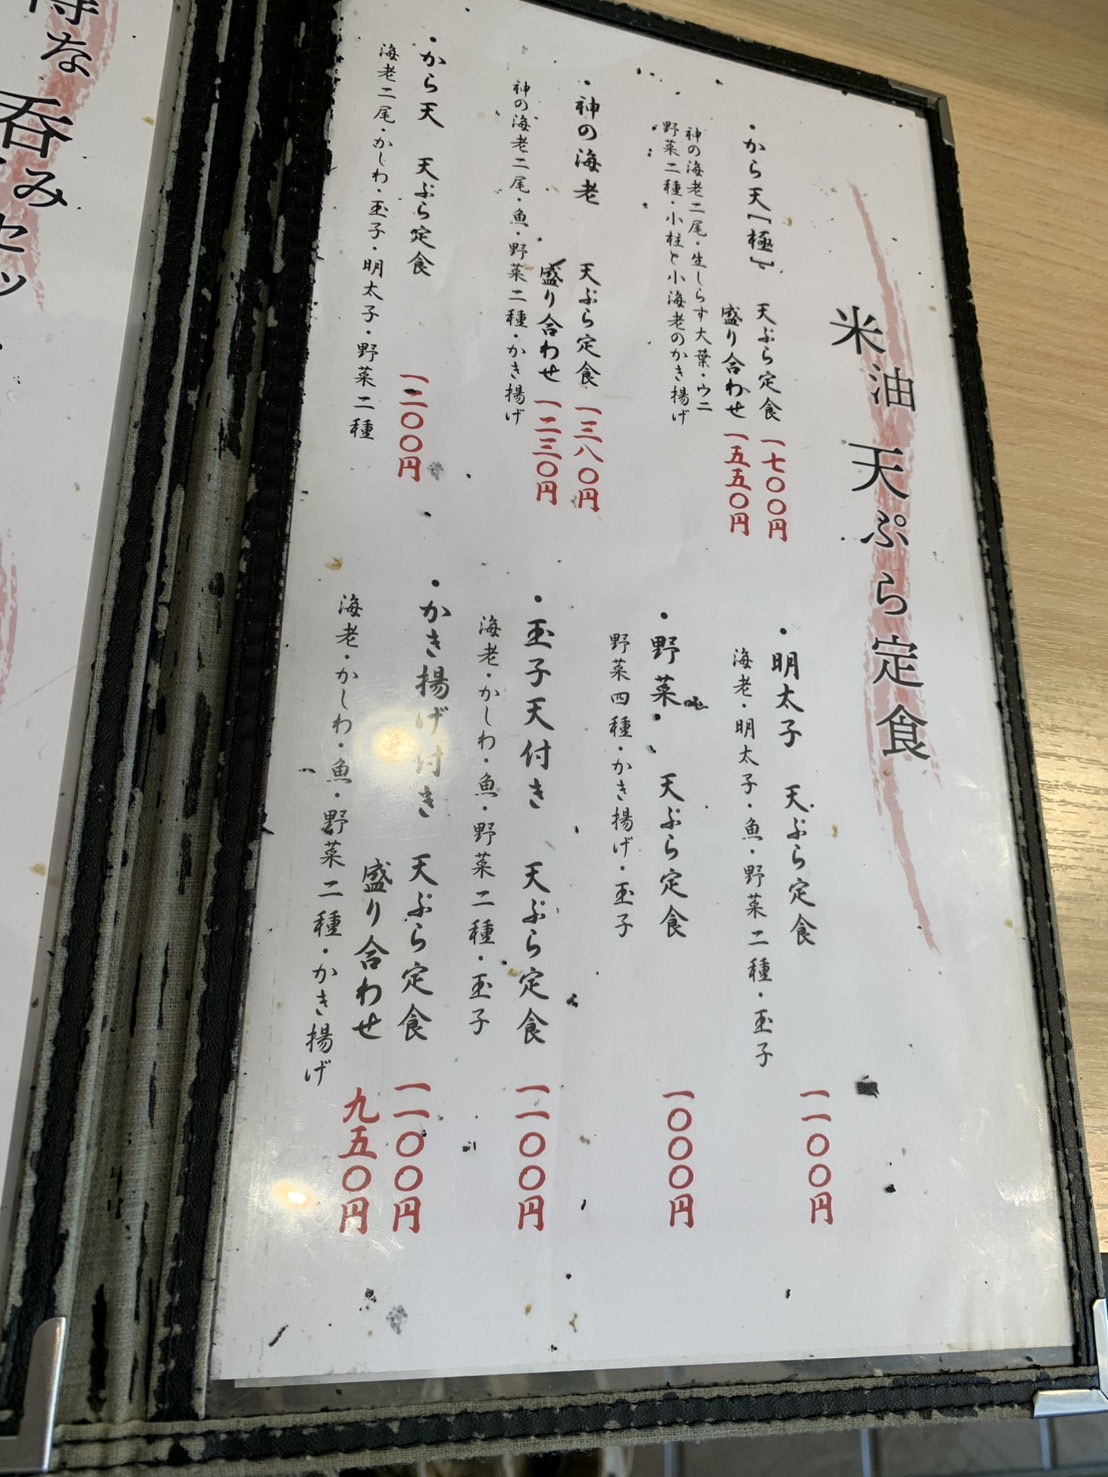 米油 天ぷら定食
・から天「極」 天ぷら定食 一七〇〇円
盛り合わせ 一五五〇円
神の海老二尾・生しらす大葉・ウニ
野菜二種・小柱と小海老のかき揚げ
・神の海老 天ぷら定食 一三八〇円
盛り合わせ 一二三〇円
神の海老二尾・魚・野菜二種・かき揚げ
・から天 天ぷら定食 一二〇〇円
海老二尾・かしわ・玉子・明太子・野菜二種
・明太子 天ぷら定食 一一〇〇円
海老・明太子・魚・野菜二種・玉子
・野菜 天ぷら定食 一〇〇〇円
野菜四種・かき揚げ・玉子
・玉子天付き 天ぷら定食 一一〇〇円
海老・かしわ・魚・野菜二種・玉子
・かき揚げ付き 天ぷら定食 一一〇〇円
盛り合わせ 九五〇円
海老・かしわ・魚・野菜二種・かき揚げ
得な
呑み
セッ